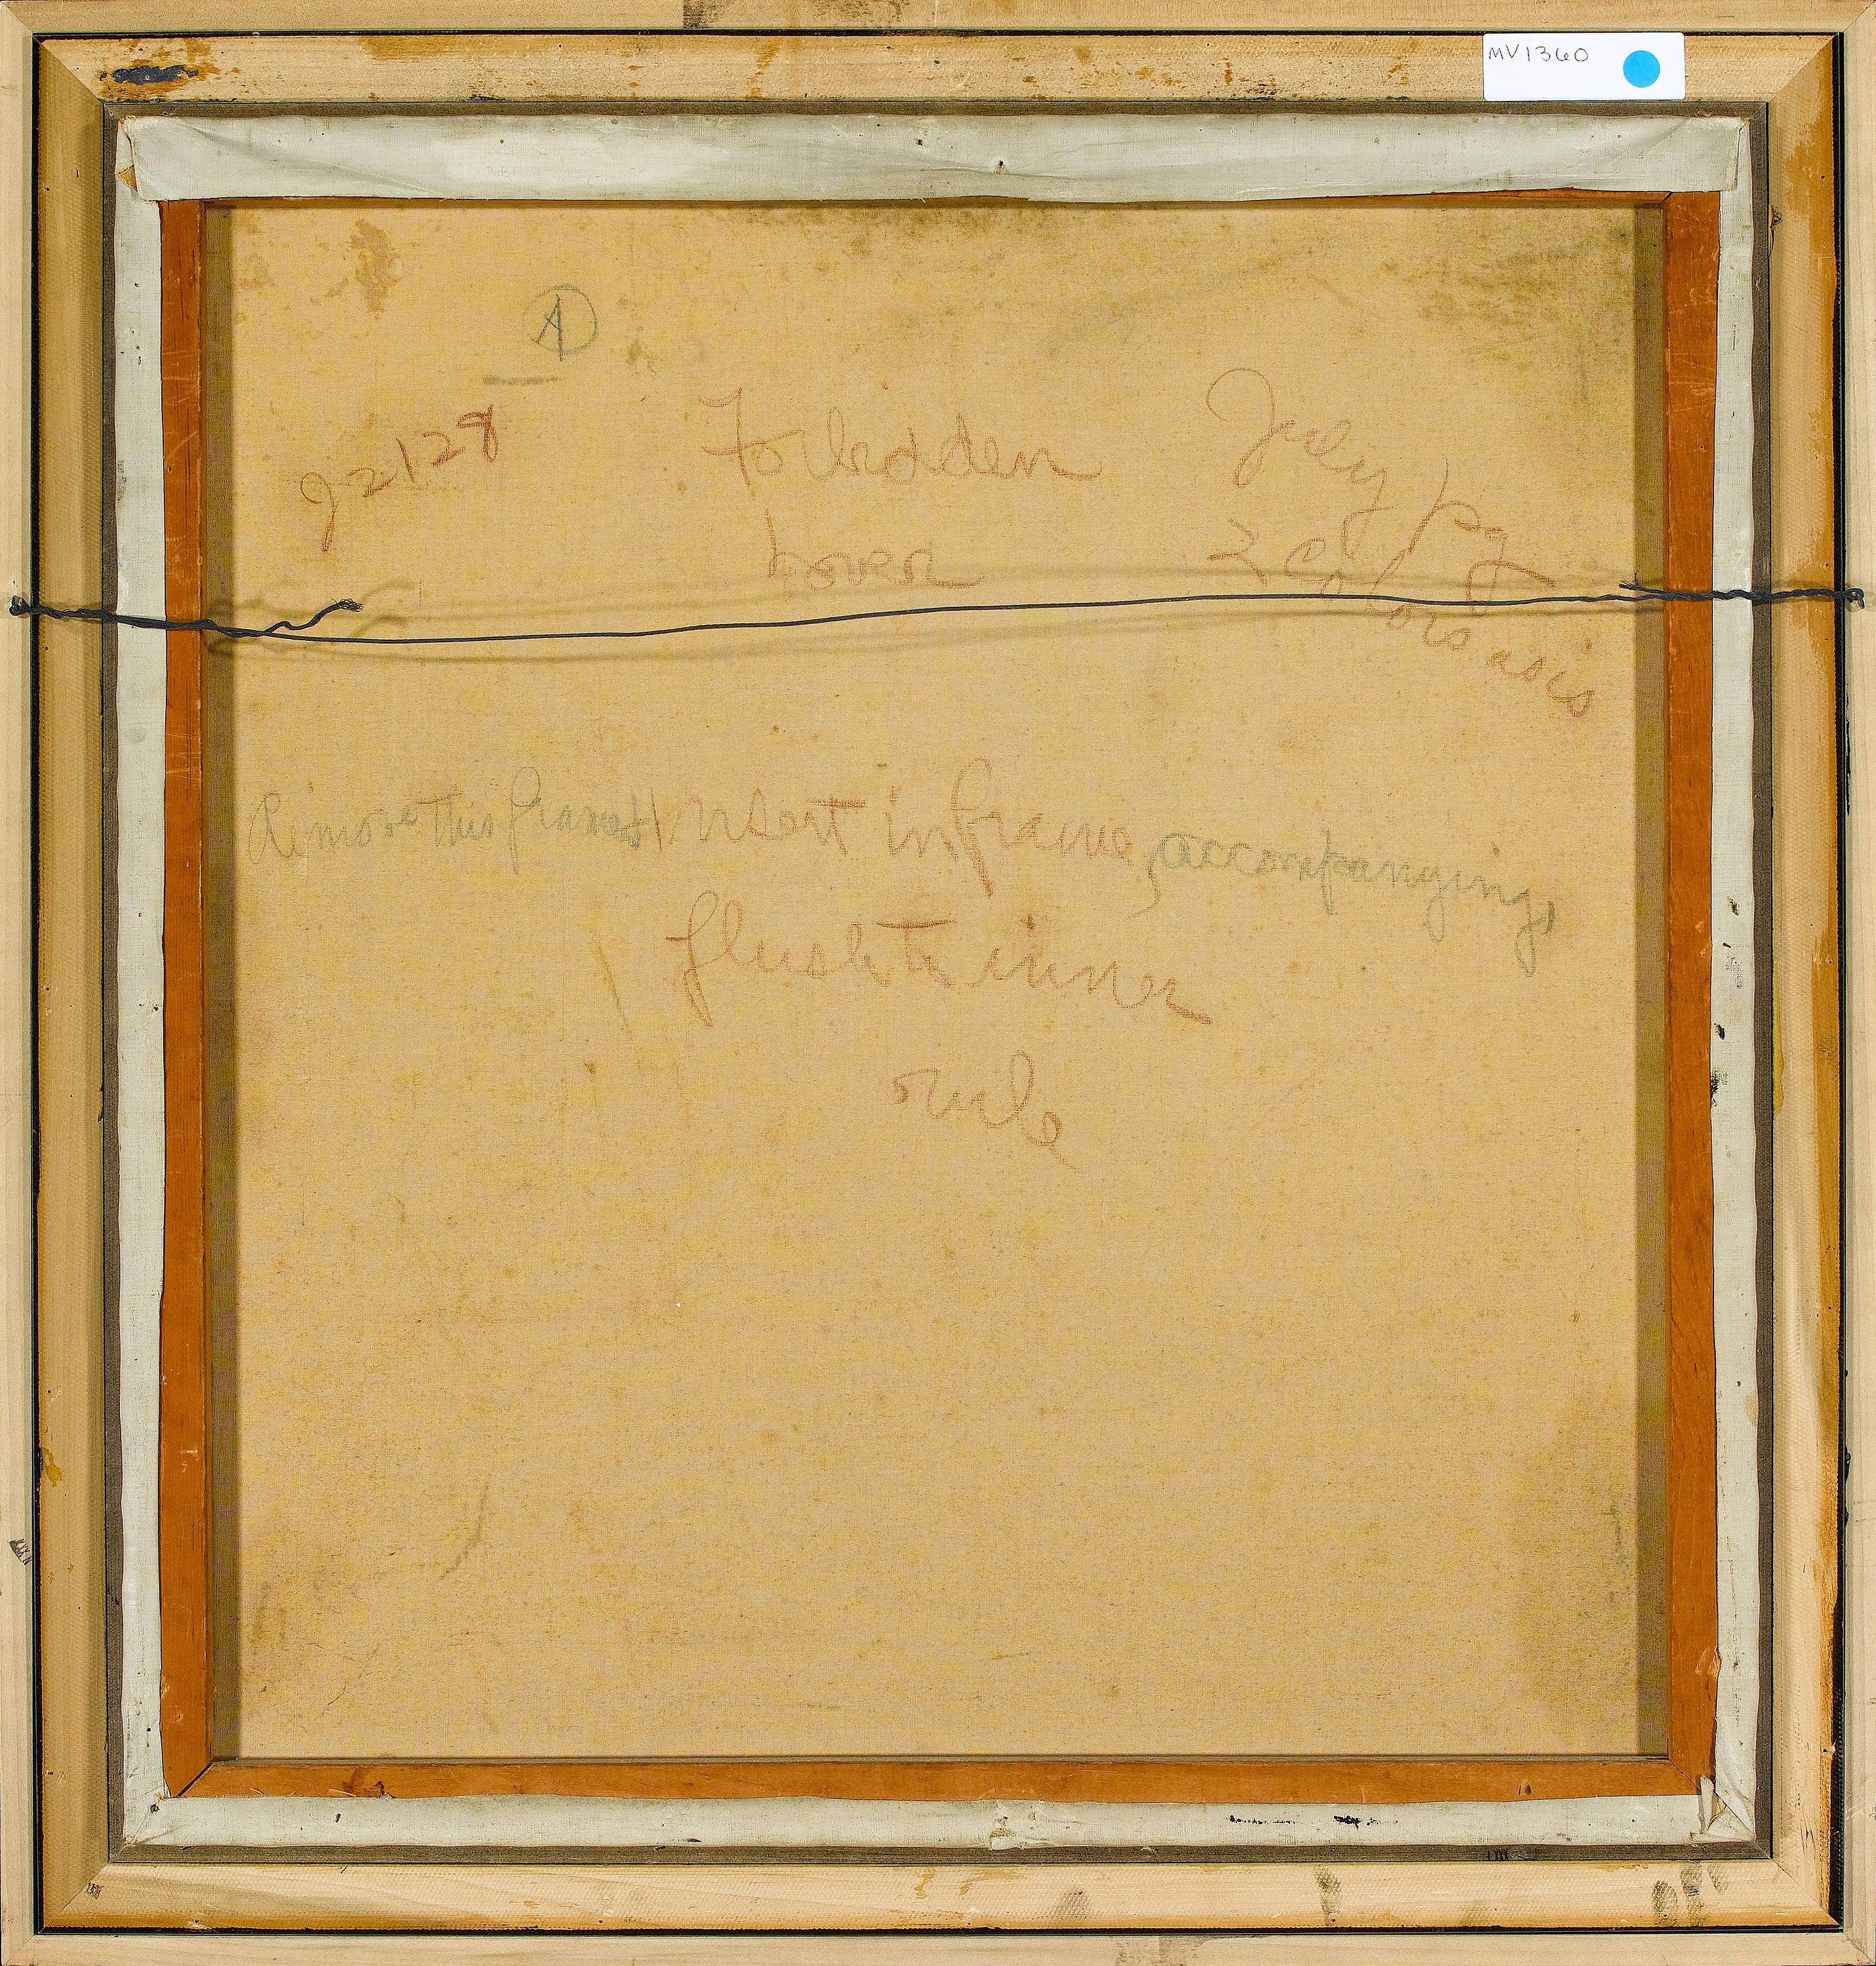 MV1360
A
J2128
Forbidden
Lover
July pg
2 colors as is
Remove this frame & Insert in frame, accompanying,
flush to inner
rule